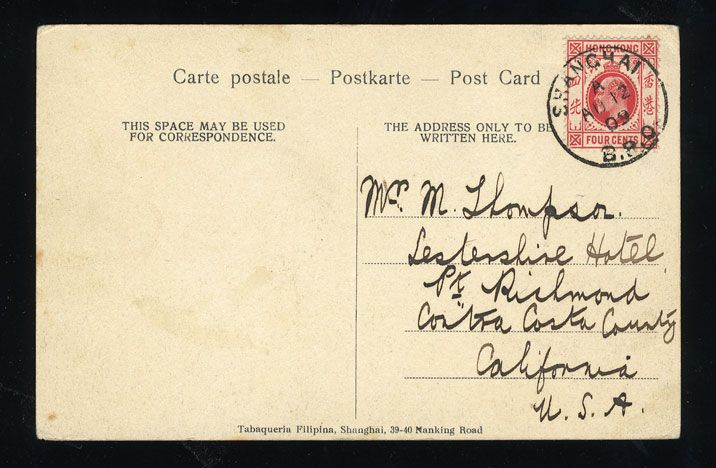 Carte postale — Postkarte — Post Card
THIS SPACE MAY BE USED
FOR CORRESPONDENCE.
THE ADDRESS ONLY TO BE
WRITTEN HERE.
HONG KONG
香港
FOUR CENTS
SHANGHAI
A
AU 12
09
B.P.O
Mr. M. Thompson.
Lestershire Hotel
Pt Richmond
Contra Costa County
California
U.S.A.
Tabaqueria Filipina, Shanghai, 39-40 Nanking Road